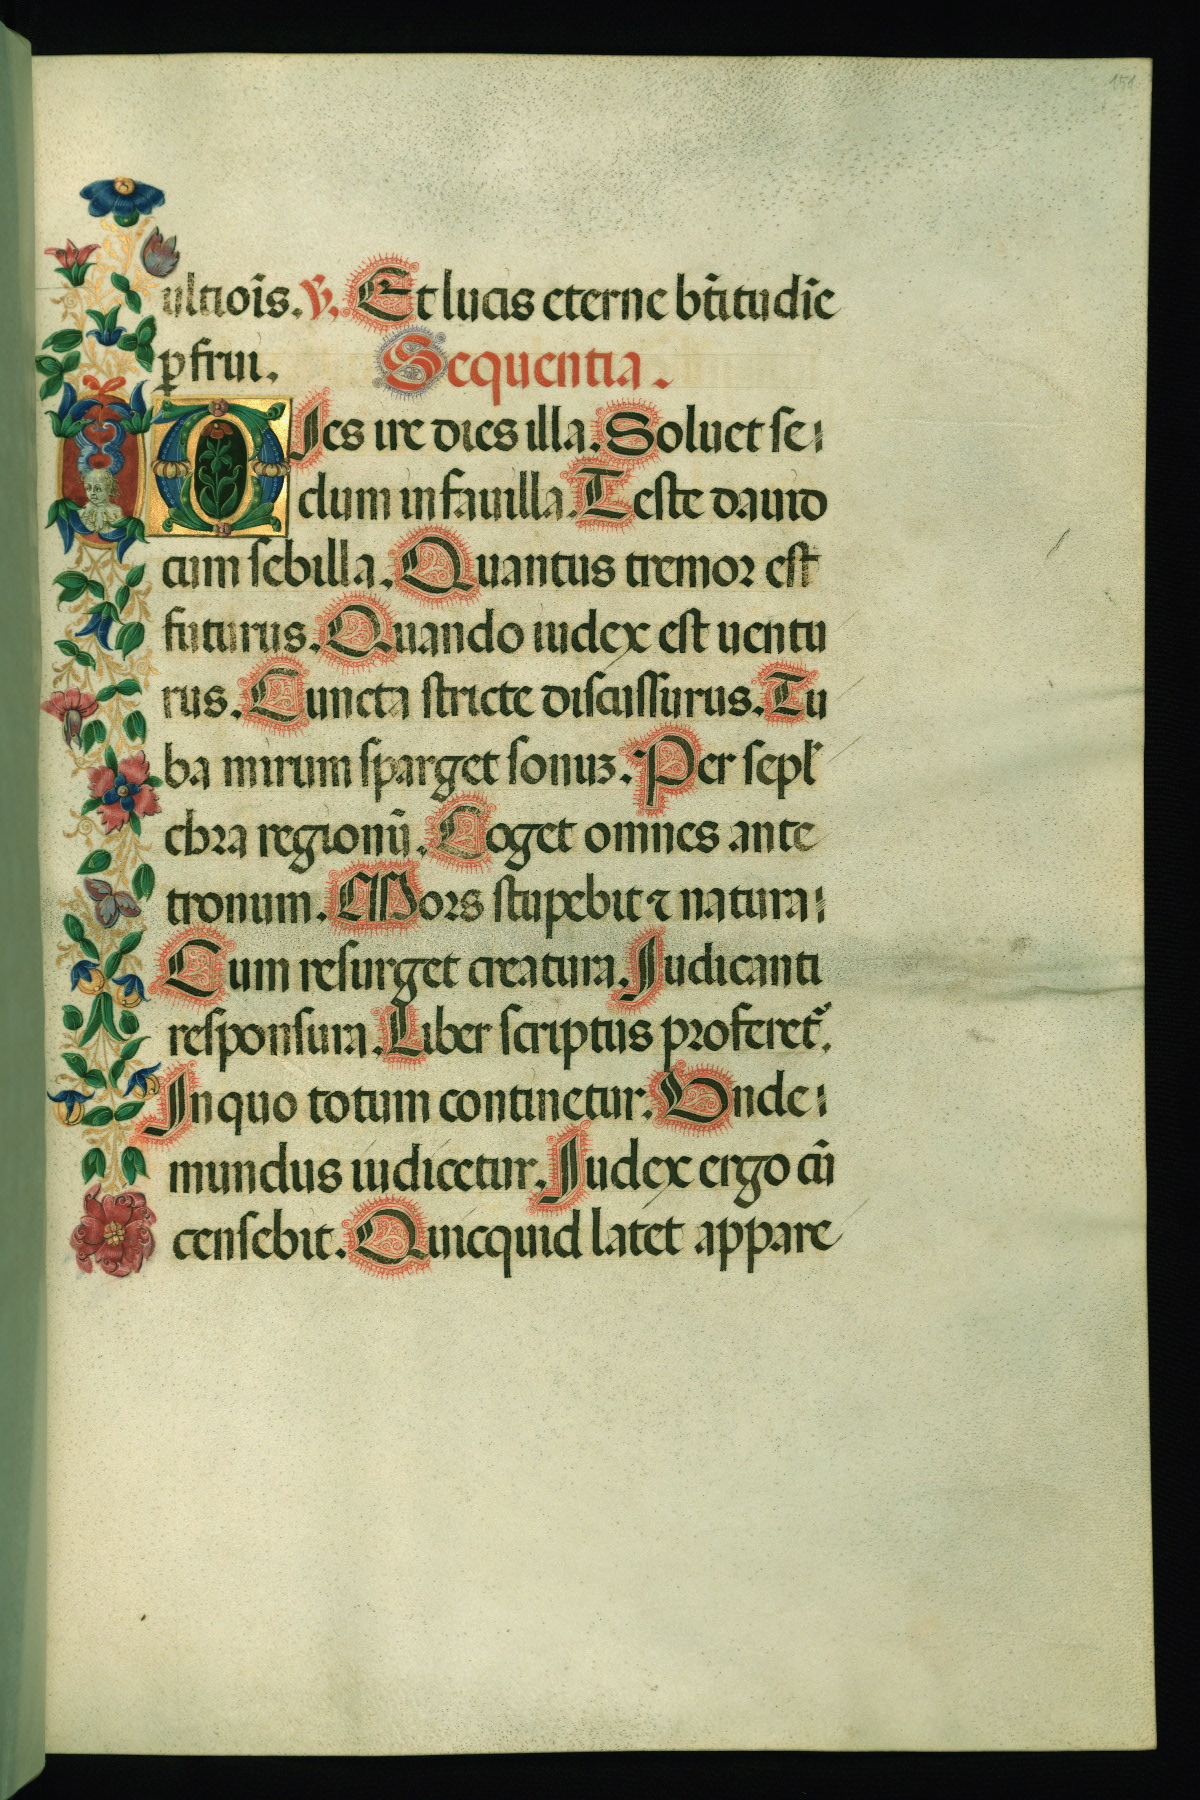 151
ultiōis. ℣. Et lucis eterne bt̄itudīe
ꝑfrui. Sequentia.
Dies ire dies illa. Soluet se
clum in fauilla. Teste dauid
cum sebilla. Quantus tremor est
futurus. Quando iudex est uentu
rus. Cuncta stricte discussurus. Tu
ba mirum sparget sonus. Per sepl
chra regionū. Coget omnes ante
tronum. Mors stupebit ⁊ natura
Cum resurget creatura. Judicanti
responsura. Liber scriptus proferet᷑.
In quo totum continetur. Unde
mundus iudicetur. Judex ergo cū
censebit. Quicquid latet appare